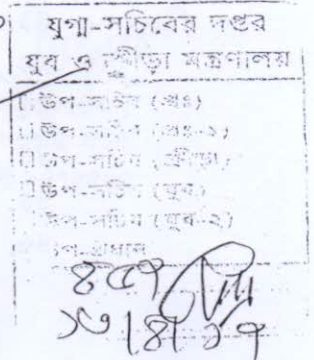 যুগ্ম-সচিবের দপ্তর
যুব ও ক্রীড়া মন্ত্রণালয়
উপ-সচিব (প্রঃ)
উপ-সচিব (প্রঃ-২)
উপ-সচিব (ক্রীড়া)
উপ-সচিব (যুব)
উপ-সচিব (যুব-২)
উপ-প্রধান
৪৫৭
১৬/৪/১৭